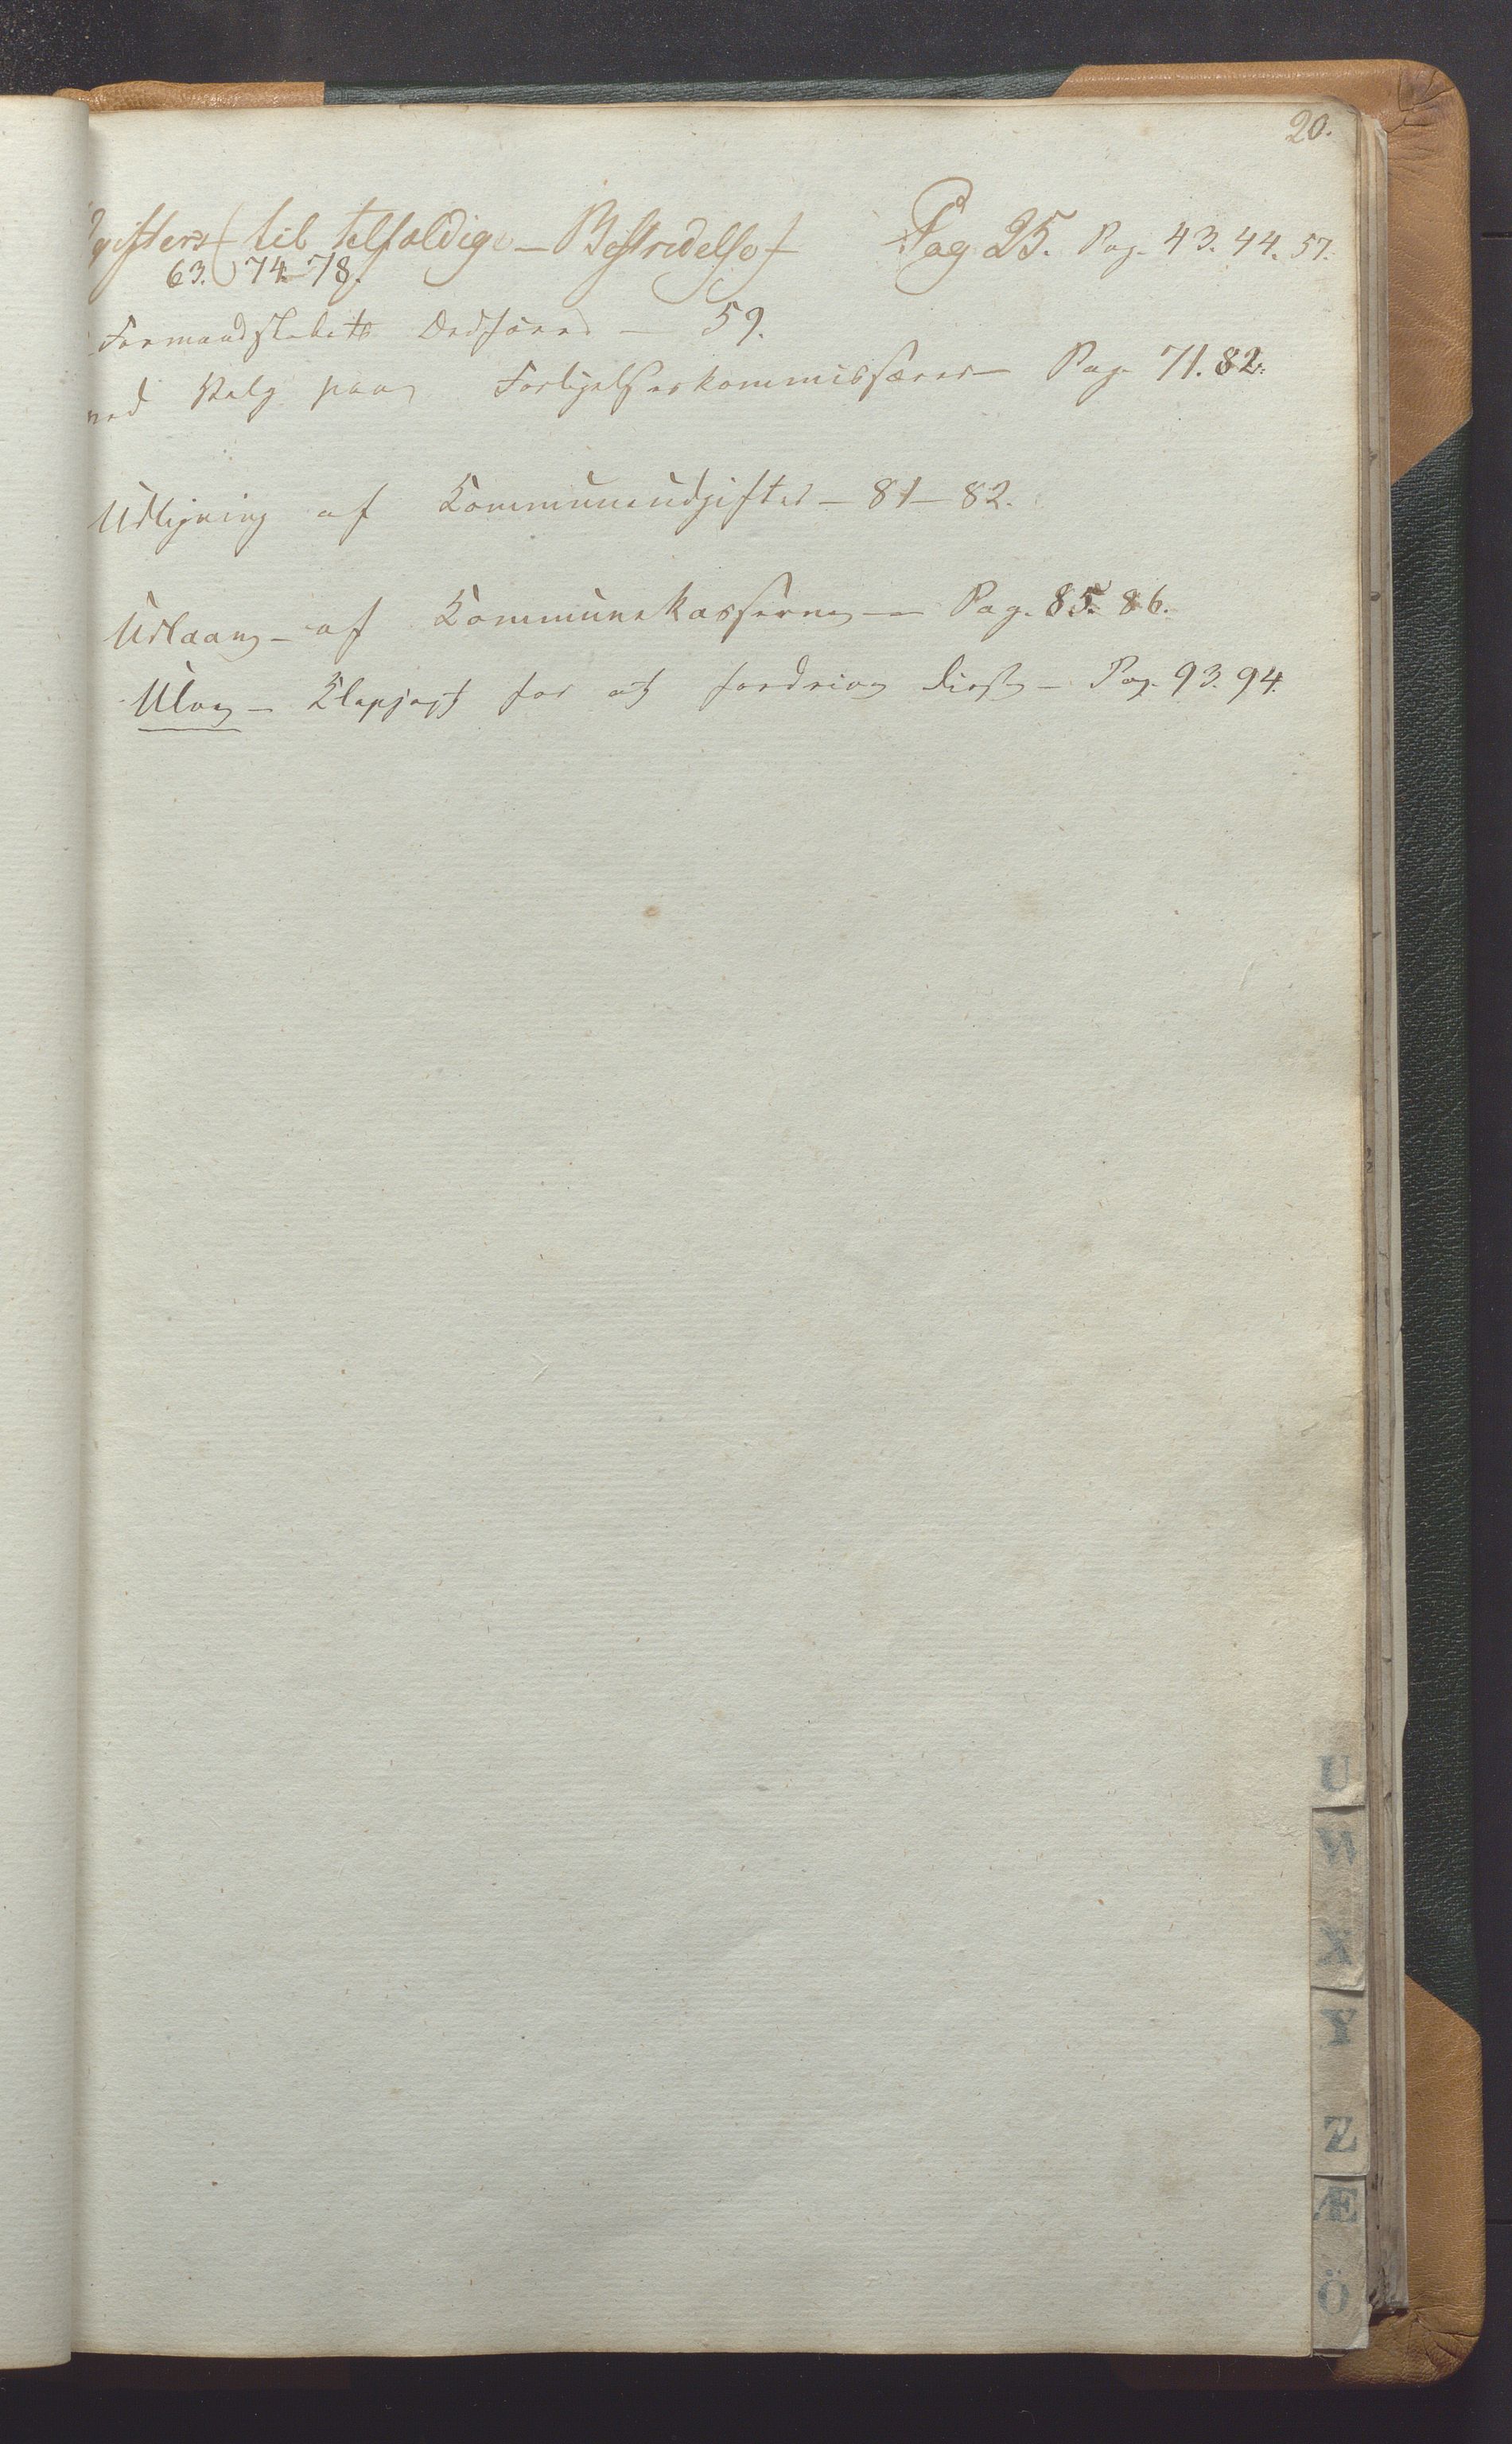 20.
gifters (til tilfældige - Bestridelse) Pag 25. Pag. 43. 44. 57.
63. 74-78.
Formandskabets Ordförer - 59.
ved Valg paa Forligelseskommissærer Pag. 71. 82.
Udligning af Kommuneudgifter - 81-82.
Udlaan - af Kommunekasserne - Pag. 85. 86.
Ulve - Klapjagt for at fordrive disse - Pag. 93. 94.
U
W
X
Y
Z
Æ
Ö